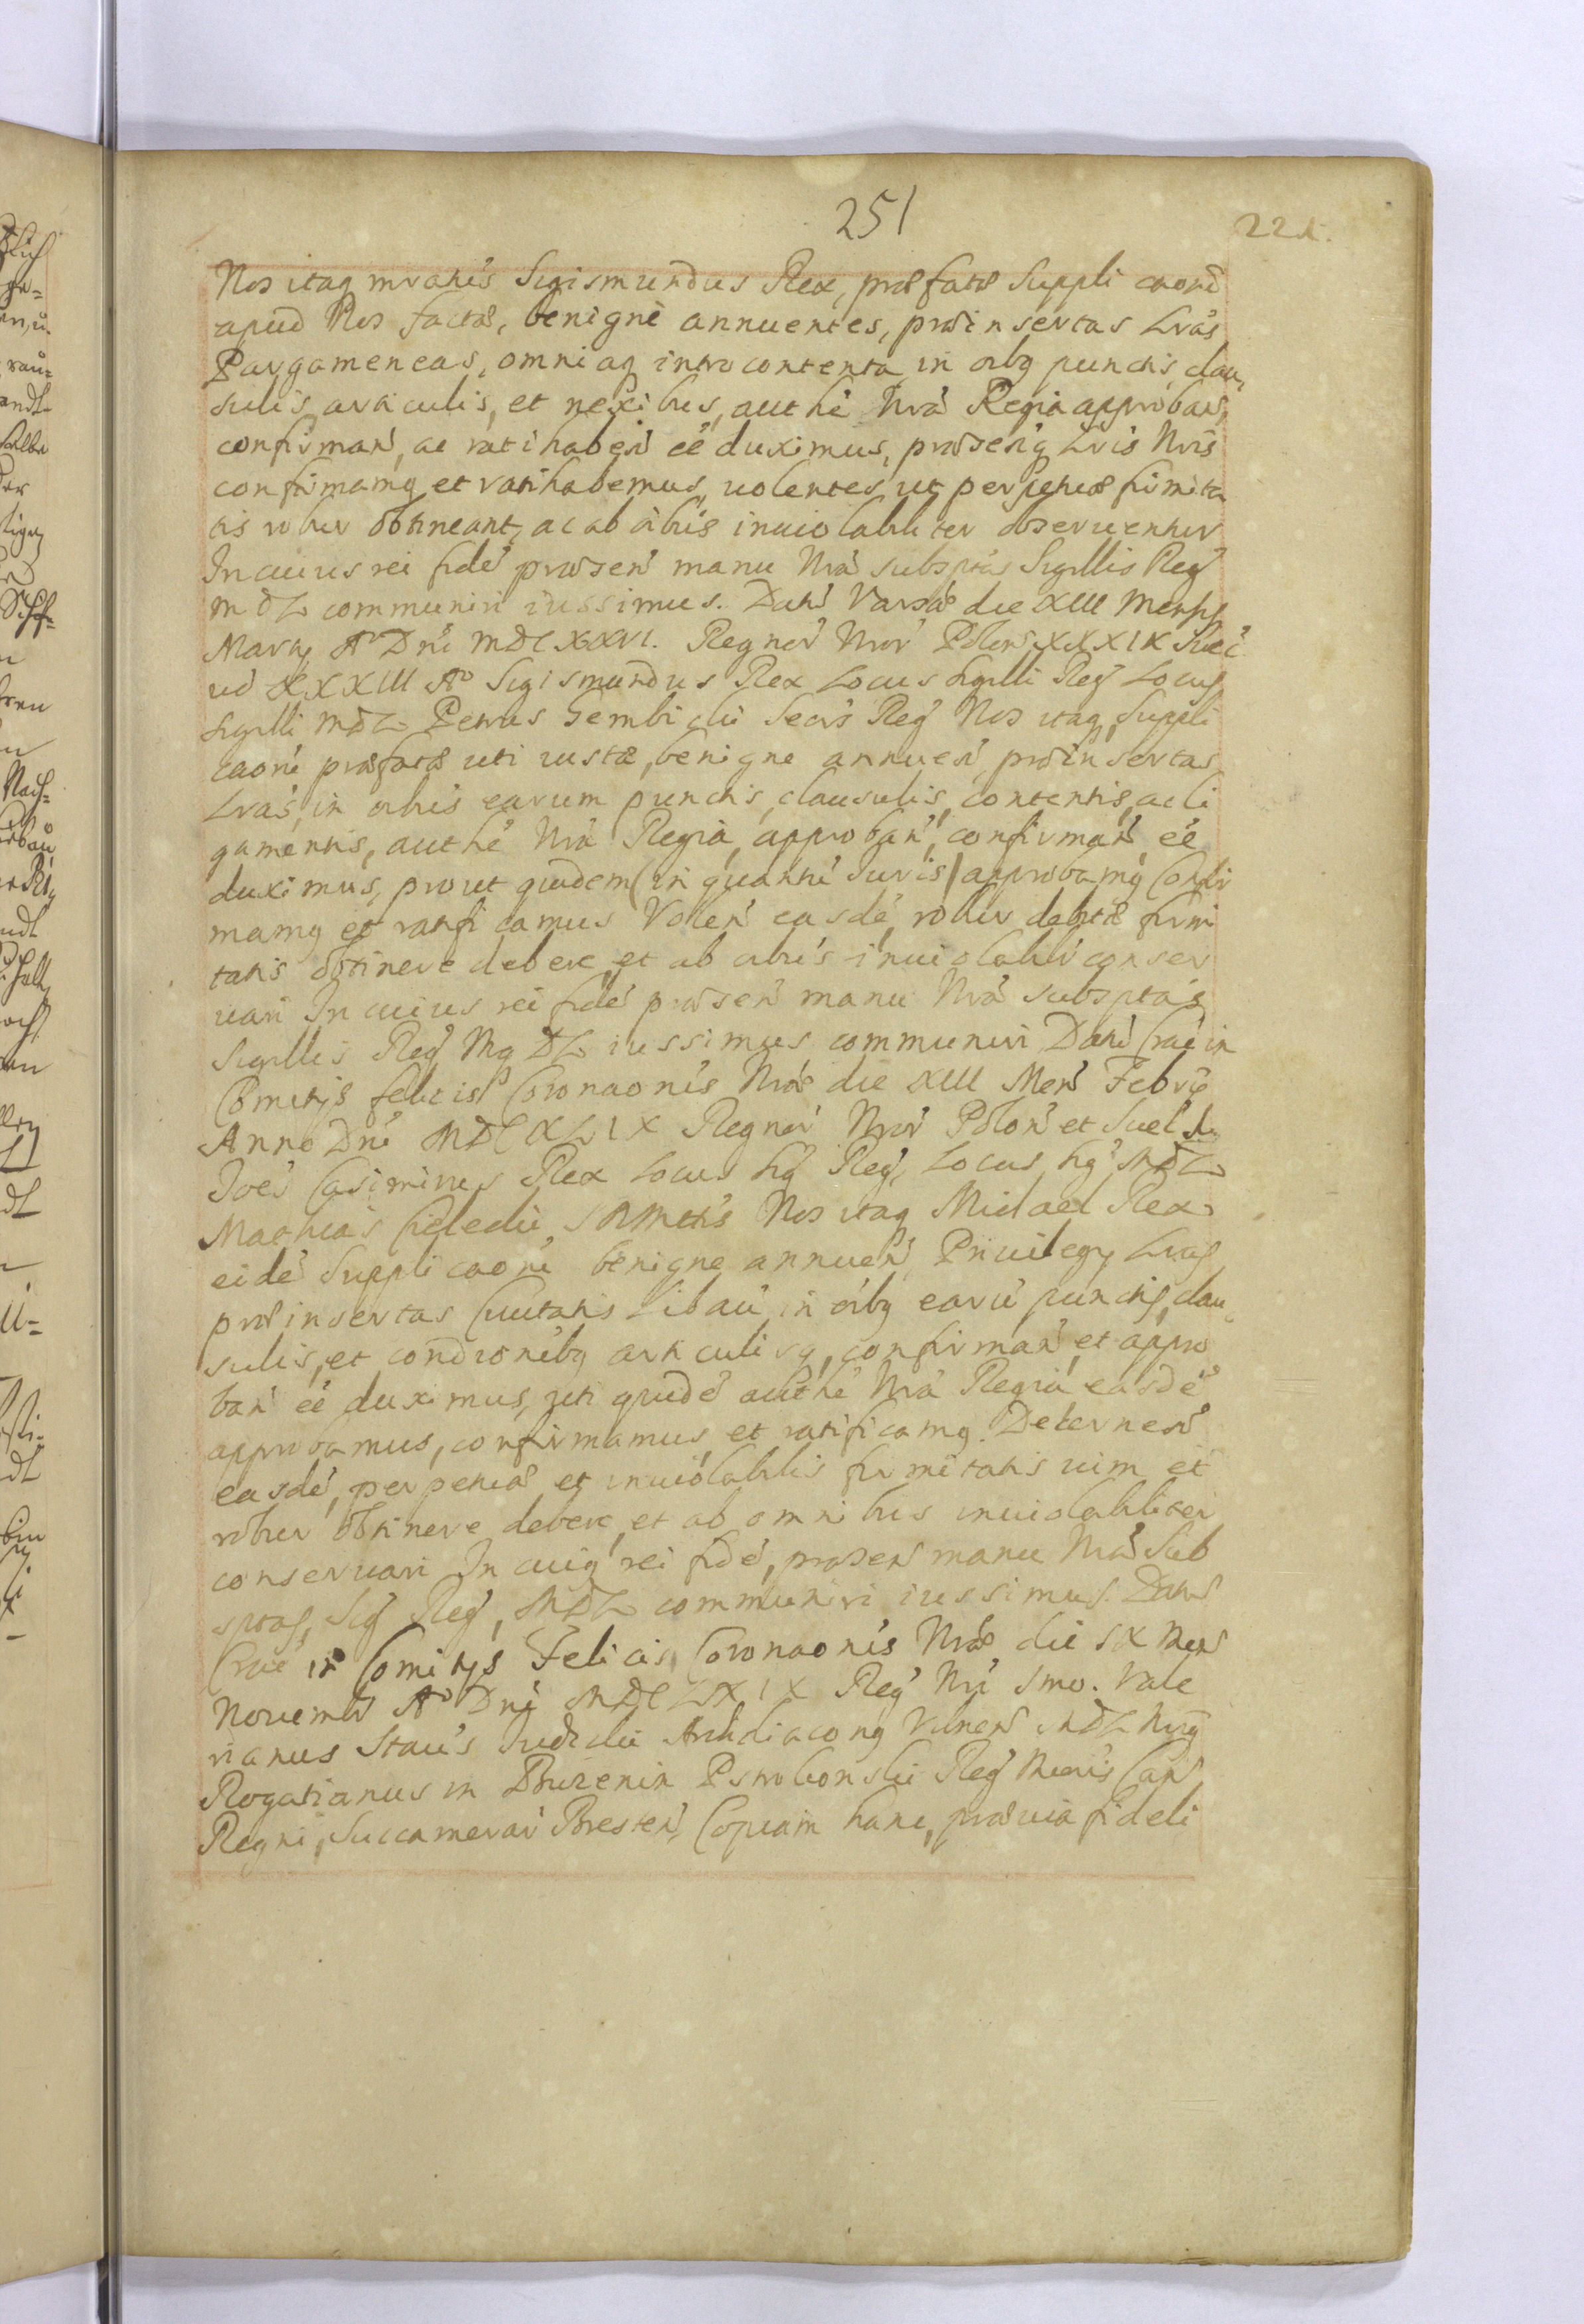 251
221.
Nos itaq Sigismundus Rex, præfatæ Suppli caoni
apud Nos factæ, benignè annuentes, præinsertas Lrás
Pargameneas, omniaq intro contenta in oibq punctis, clau,
sulis, articulis, et nexibus, authè Nrâ Regiâ approban,
confirman, ac ratihaben éé duximus, præsenq Lris Nris
confirmamq et ratihabemus, uolentes, ut perpetuæ firmita
tis robur obtineant, ac ab oibús inuiolabiliter obseruentur
In cuius rei fidé præsen manu Nrâ subsptás Sigillis Reg
MDL communiri iussimus. Dats Varsæ die XIII Mensis
Martij A° Dni MDCXXVI. Regnor Nror Polon XXXIX Suec
uó XXXIII A° Sigismundus Rex Locus Sigilli Reg Locus
Sigilli MDL Petrus Gembicki Secrs Reg Nos itaq Suppli
caoni præfatæ uti iustæ, benigne annuen, præinsertas
Lrás, in oibús earum punctis, clausulis, contentis, ac li
gamentis, authé Nrâ Regiâ, approban, confirman éé
duximus, prout quidem (in quantú Juris) approbamq Confir
mamq et ratifi camus Volen easdé robur debitæ firmi
tatis obtinere debere, et ab oibús inuiolablr conser
uari In cuius rei fidé præsen manu Nrâ subsptás
Sigillis Reg Mq DL iussimus communiri Dats Crae in
Comitijs felicis Coronaonis Nræ die XIII Men Febrij
Anno Dni MDCXLIX Regnor Nror Polon et Suec
Joés Casimirus Rex Locus Sig Reg, Locus Sig MDL
Mathias Nos itaq Michael Rex
eidé Supplicaoni benigne annuen, Priuilegy Lras
præinsertas Ciuitatis Libaú, in oibq earú punctis, clau,
sulis, et condionibq articulisq, confirman et appro
ban éé duximus, uti quidé authé Nrâ Regiâ easdé
approbamus, confirmamus et ratificamq. Decernen
easdé, perpetuæ et inuiolabilis firmitatis uim et
robur obtinere debere, et ab omnibus inuiolabiliter
conseruari In cuiq rei fidé, præsen manu Nrâ Sub
sptas, Sig Reg, MDL communiri iussimus. Dats
Crae in Comitijs Felicis Coronaonis Nræ die IX Men
Nouemb A° Dni MDCLXIX Reg Nri Imo. Vale
rianus Staús Judicki Archidiaconq Vilnen MDL
Rogatianus in Bruzenin Pstrokonski Reg Can
Regni, Succamerar Bresten, Copiam hanc, præuiâ fideli